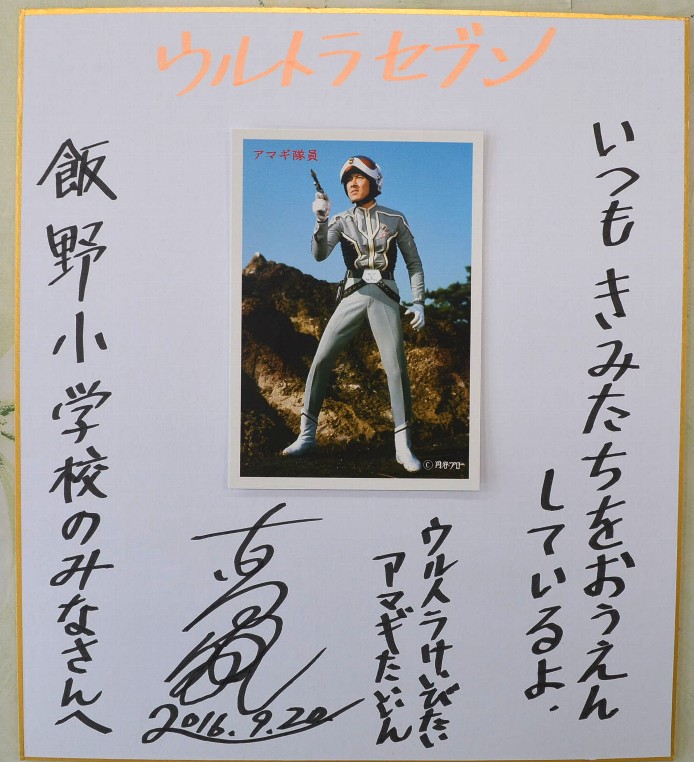 ウルトラセブン
いつもきみたちをおうえん
しているよ.
アマギ隊員
©円谷プロ
ウルトラけいびたい
アマギたいいん
2016.9.20
飯野小学校のみなさんへ